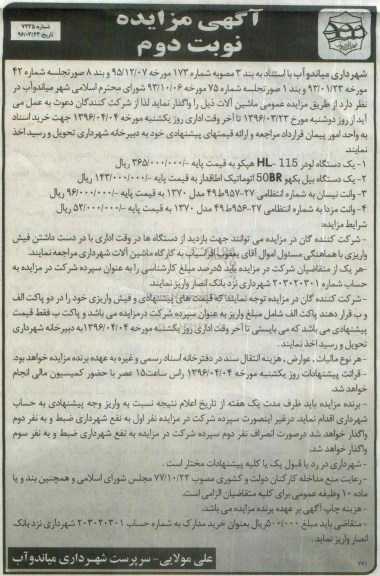 شماره: ۷۲۲۵
تاریخ: ۹۶/۰۳/۲۳
آگهی مزایده
نوبت دوم
شهرداری میاندوآب با استناد به بند ۳ مصوبه شماره ۱۷۳ مورخه ۹۵/۱۲/۰۷ و بند ۸ صورتجلسه شماره ۴۲
مورخه ۹۳/۰۱/۲۳ و بند ۱ صورتجلسه شماره ۷۵ مورخه ۹۳/۱۰/۰۶ شورای محترم اسلامی شهر میاندوآب در
نظر دارد از طریق مزایده عمومی ماشین آلات ذیل را واگذار نماید لذا از شرکت کنندگان دعوت به عمل می
آید از روز دوشنبه مورخ ۱۳۹۶/۰۳/۲۲ تا آخر وقت اداری روز یکشنبه مورخه ۱۳۹۶/۰۴/۰۴ جهت خرید اسناد
به واحد امور پیمان قرارداد مراجعه و ارائه قیمتهای پیشنهادی خود به دبیرخانه شهرداری تحویل و رسید اخذ
نمایند.
۱- یک دستگاه لودر HL- 115 هپکو به قیمت پایه -/۳۶۵/۰۰۰/۰۰۰ ریال
۲- یک دستگاه بیل بکهو 50BR اتوماتیک اطاقدار به قیمت پایه -/۱۴۳/۰۰۰/۰۰۰ ریال
۳- وانت نیسان به شماره انتظامی ۲۷-۹۵۷ط۴۹ مدل ۱۳۷۰ به قیمت پایه -/۹۶/۰۰۰/۰۰۰ ریال
۴- وانت مزدا به شماره انتظامی ۲۷-۹۵۶ط۴۹ مدل ۱۳۷۰ به قیمت پایه -/۵۲/۰۰۰/۰۰۰ ریال
شرایط مزایده:
- شرکت کننده گان در مزایده می توانند جهت بازدید از دستگاه ها در وقت اداری با در دست داشتن فیش
واریزی با هماهنگی مسئول اموال آقای یعقوب افراسیاب به کارگاه ماشین آلات شهرداری مراجعه نمایند.
-هر یک از متقاضیان شرکت در مزایده باید ۵درصد مبلغ کارشناسی را به عنوان سپرده شرکت در مزایده به
حساب شماره ۲۰۳۰۲۰۳۰۱ شهرداری نزد بانک انصار واریز نمایند.
- شرکت کننده گان در مزایده توجه نمایند که قیمت های پیشنهادی و فیش واریزی خود را در دو پاکت الف
و ب قرار دهند پاکت الف شامل مبلغ واریز به عنوان سپرده شرکت درمزایده می باشد و پاکت ب فقط قیمت
پیشنهادی می باشد که می بایستی تا آخر وقت اداری روز یکشنبه مورخه ۱۳۹۶/۰۴/۰۴به دبیرخانه شهرداری
تحویل و رسید اخذ نمایند .
- هر نوع مالیات , عوارض , هزینه انتقال سند در دفترخانه اسناد رسمی و غیره به عهده برنده مزایده خواهد بود.
- قرائت پیشنهادات روز یکشنبه مورخه ۱۳۹۶/۰۴/۰۴ راس ساعت۱۵ عصر با حضور کمیسیون مالی انجام
خواهد شد.
- برنده مزایده باید ظرف مدت یک هفته از تاریخ اعلام نتیجه نسبت به واریز وجه پیشنهادی به حساب
شهرداری اقدام نماید. درغیر اینصورت سپرده شرکت در مزایده نفر اول به نفع شهرداری ضبط و به نفر دوم
واگذار خواهد شد درصورت انصراف نفر دوم سپرده شرکت در مزایده به نفع شهرداری ضبط و به نفر سوم
واگذار خواهد شد.
- شهرداری در رد یا قبول یک یا کلیه پیشنهادات مختار است .
- رعایت منع مداخله کارکنان دولت و کشوری مصوب ۷۷/۱۰/۲۲ مجلس شورای اسلامی و همچنین بند و یا
ماده ۱۰ وظیفه عمومی برای کلیه متقاضیان الزامی است.
- هزینه چاپ آگهی بر عهده برنده مزایده می باشد.
- متقاضی باید مبلغ ۵۰۰/۰۰۰ریال بعنوان خرید مدارک به شماره حساب ۲۰۳۰۲۰۳۰۱ شهرداری نزد بانک
انصار واریز نماید.
علی مولایی- سرپرست شهرداری میاندوآب